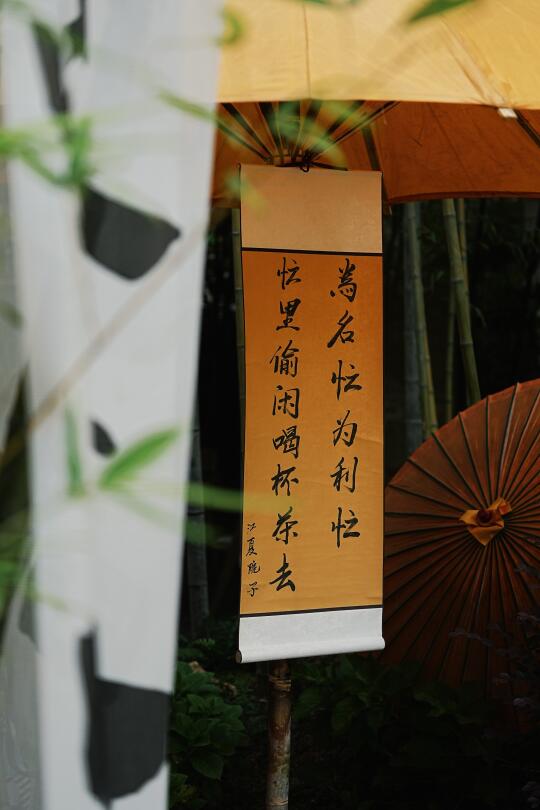 為名忙为利忙
忙里偷闲喝杯茶去
江夏子